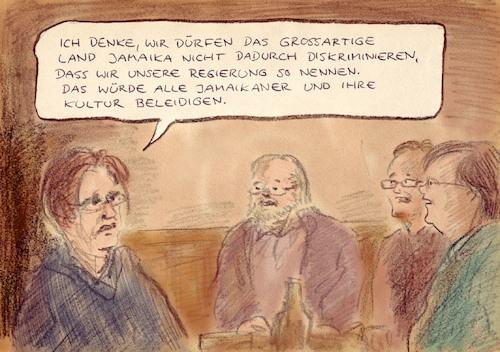 ICH DENKE, WIR DÜRFEN DAS GROSSARTIGE
LAND JAMAIKA NICHT DADURCH DISKRIMINIEREN,
DASS WIR UNSERE REGIERUNG SO NENNEN.
DAS WÜRDE ALLE JAMAIKANER UND IHRE
KULTUR BELEIDIGEN.